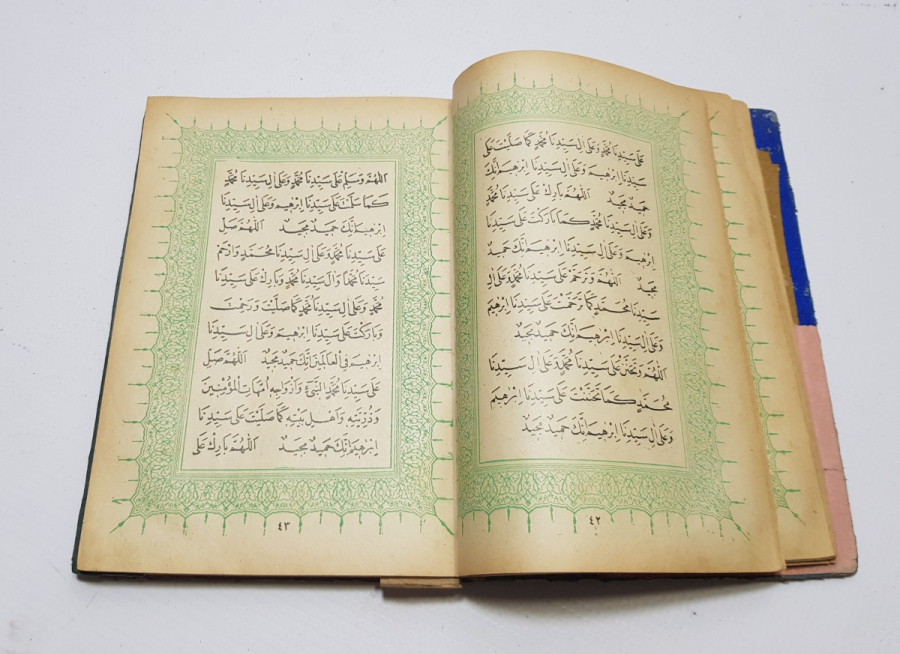 عَلَى سَيِّدِنَا مُحَمَّدٍ وَعَلَى اٰلِ سَيِّدِنَا مُحَمَّدٍ كَمَا صَلَّيْتَ عَلَى
سَيِّدِنَا اِبْرٰهِيمَ وَعَلَى اٰلِ سَيِّدِنَا اِبْرٰهِيمَ اِنَّكَ
حَمِيدٌ مَجِيدٌ اَللّٰهُمَّ بَارِكْ عَلَى سَيِّدِنَا مُحَمَّدٍ
وَعَلَى اٰلِ سَيِّدِنَا مُحَمَّدٍ كَمَا بَارَكْتَ عَلَى سَيِّدِنَا
اِبْرٰهِيمَ وَعَلَى اٰلِ سَيِّدِنَا اِبْرٰهِيمَ اِنَّكَ حَمِيدٌ
مَجِيدٌ اَللّٰهُمَّ وَتَرَحَّمْ عَلَى سَيِّدِنَا مُحَمَّدٍ وَعَلَى اٰلِ
سَيِّدِنَا مُحَمَّدٍ كَمَا تَرَحَّمْتَ عَلَى سَيِّدِنَا اِبْرٰهِيمَ
وَعَلَى اٰلِ سَيِّدِنَا اِبْرٰهِيمَ اِنَّكَ حَمِيدٌ مَجِيدٌ
اَللّٰهُمَّ وَتَحَنَّنْ عَلَى سَيِّدِنَا مُحَمَّدٍ وَعَلَى اٰلِ سَيِّدِنَا
مُحَمَّدٍ كَمَا تَحَنَّنْتَ عَلَى سَيِّدِنَا اِبْرٰهِيمَ
وَعَلَى اٰلِ سَيِّدِنَا اِبْرٰهِيمَ اِنَّكَ حَمِيدٌ مَجِيدٌ
٤٢
اَللّٰهُمَّ وَسَلِّمْ عَلَى سَيِّدِنَا مُحَمَّدٍ وَعَلَى اٰلِ سَيِّدِنَا مُحَمَّدٍ
كَمَا سَلَّمْتَ عَلَى سَيِّدِنَا اِبْرٰهِيمَ وَعَلَى اٰلِ سَيِّدِنَا
اِبْرٰهِيمَ اِنَّكَ حَمِيدٌ مَجِيدٌ اَللّٰهُمَّ صَلِّ
عَلَى سَيِّدِنَا مُحَمَّدٍ وَعَلَى اٰلِ سَيِّدِنَا مُحَمَّدٍ وَارْحَمْ
سَيِّدَنَا مُحَمَّدًا وَاٰلَ سَيِّدِنَا مُحَمَّدٍ وَبَارِكْ عَلَى سَيِّدِنَا
مُحَمَّدٍ وَعَلَى اٰلِ سَيِّدِنَا مُحَمَّدٍ كَمَا صَلَّيْتَ وَرَحِمْتَ
وَبَارَكْتَ عَلَى سَيِّدِنَا اِبْرٰهِيمَ وَعَلَى اٰلِ سَيِّدِنَا
اِبْرٰهِيمَ فِي الْعَالَمِينَ اِنَّكَ حَمِيدٌ مَجِيدٌ اَللّٰهُمَّ صَلِّ
عَلَى سَيِّدِنَا مُحَمَّدٍ النَّبِيِّ وَاَزْوَاجِهِ اُمَّهَاتِ الْمُؤْمِنِينَ
وَذُرِّيَّتِهِ وَاَهْلِ بَيْتِهِ كَمَا صَلَّيْتَ عَلَى سَيِّدِنَا
اِبْرٰهِيمَ اِنَّكَ حَمِيدٌ مَجِيدٌ اَللّٰهُمَّ بَارِكْ عَلَى
٤٣